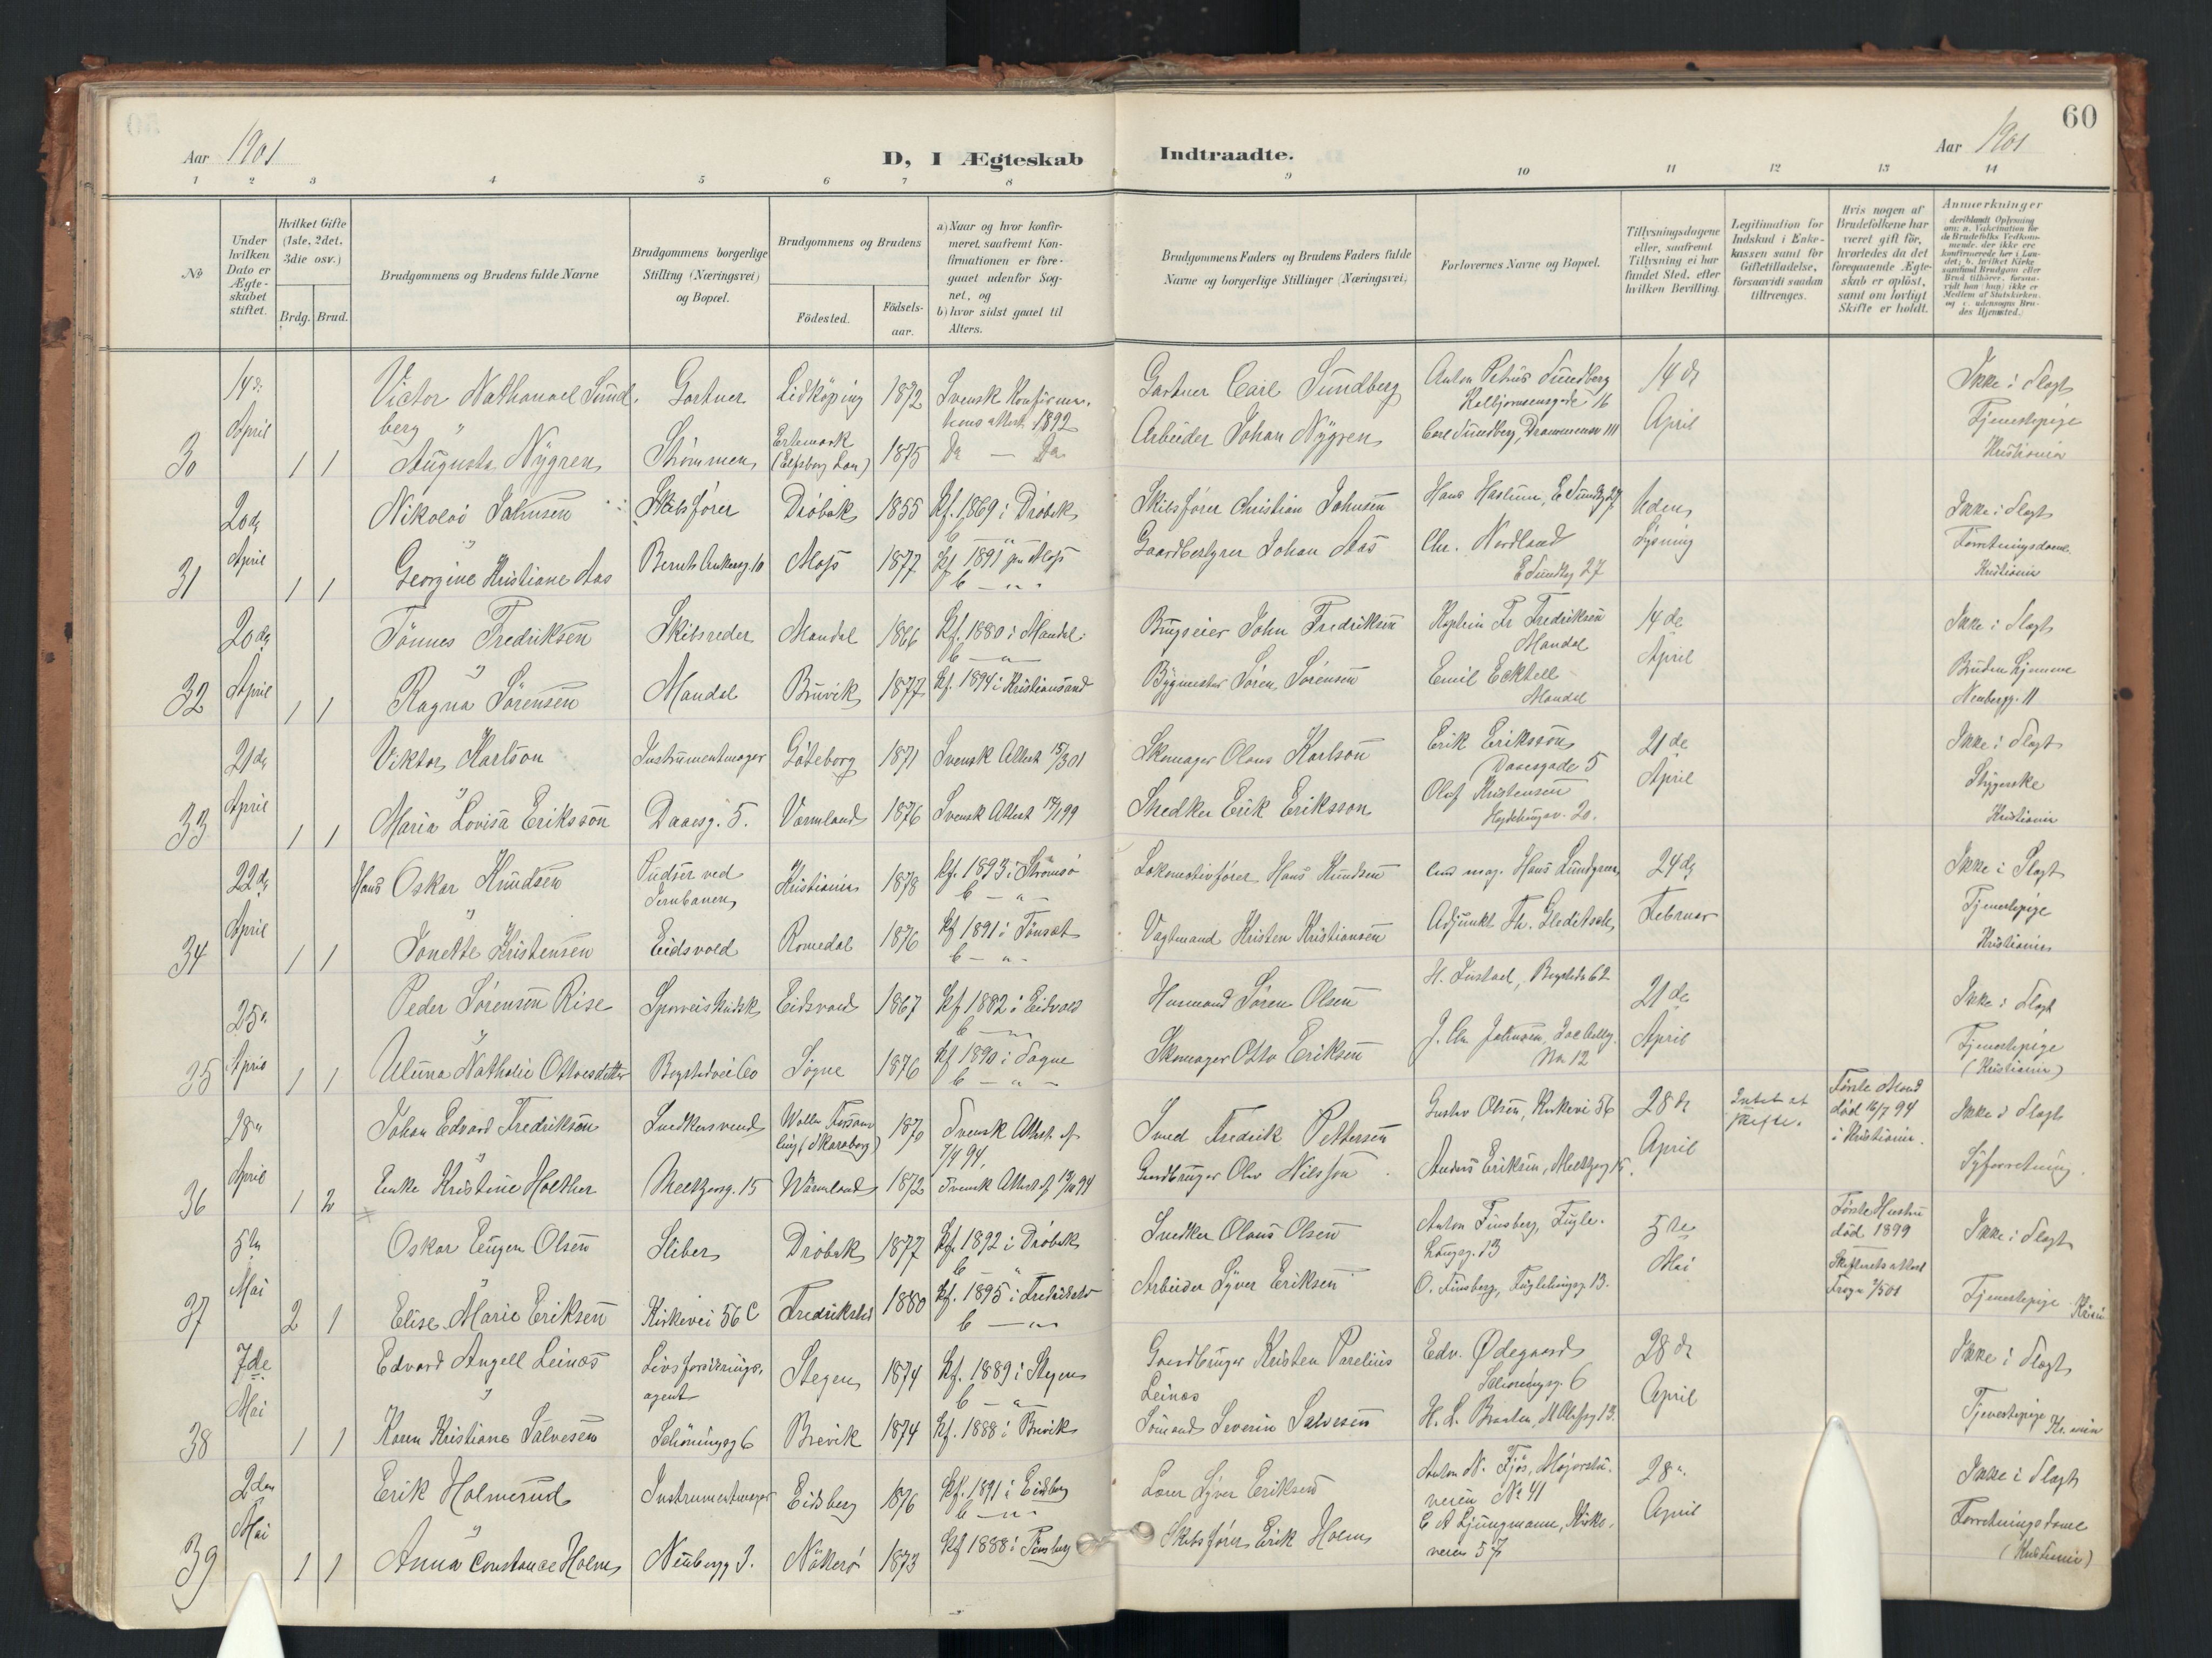 Aar 1901
D, I Ægteskab Indtraadte.
Aar 1901
60
1 2 3 4 5 6 7 8 9 10 11 12 13 14
No
Under hvilken Dato er Ægteskabet stiftet.
Hvilket Gifte (1ste, 2det, 3die osv.)
Brdg. Brud.
Brudgommens og Brudens fulde Navne
Brudgommens borgerlige Stilling (Næringsvei) og Bopæl.
Brudgommens og Brudens
Födested.
Födselsaar.
a) Naar og hvor konfirmeret, saafremt Konfirmationen er foregaaet udenfor Sognet, og
b) hvor sidst gaaet til Alters.
Brudgommens Faders og Brudens Faders fulde Navne og borgerlige Stillinger (Næringsvei)
Forlovernes Navne og Bopæl.
Tillysningsdagene eller, saafremt Tillysning ei har fundet Sted, efter hvilken Bevilling.
Legitimation for Indskud i Enkekassen samt for Giftetilladelse, forsaavidt saadan tiltrænges.
Hvis nogen af Brudefolkene har været gift för, hvorledes da det foregaaende Ægteskab er oplöst, samt om lovligt Skifte er holdt.
Anmærkninger
30 14de April 1 1
Victor Nathanael Sundberg Gartner Lidköping 1872 Svensk Konfirmationsattest 1892
Augusta Nygren Strømmen Ertemark (Elfsborg Län) 1875 Do — Do
Gartner Carl Sundberg Anton Petrus Sundberg 16 14de April Ikke i Slegt
Arbeider Johan Nygren Carl Sundberg, Drammensv 111 Tjenestepige Kristiania
31 20de April 1 1
Nikolai Johnsen Skibsfører Drøbak 1855 Kf. 1869 i Drøbak
Georgine Kristiane Aas Bernt Ankersg. 10 Moss 1877 Kf 1891 Moss
b — " -
Skibsfører Christian Johnsen Hans Haslum, E Sundtsg 27 Uden Lysning Ikke i Slegt
Gaardbestyrer Johan Aas Chr. Nordland E Sundtsg 27 Forretningsdame Kristiania
32 20de April 1 1
Tönnes Fredriksen Skibsreder Mandal 1866 Kf. 1880 i Mandal
b — "
Ragna Sörensen Mandal 1877 Kf. 1894 i Kristiansand
Brugseier John Fredriksen Kaptein Fr Fredriksen Mandal 14de April Ikke i Slegt
Bygmester Sören Sörensen Emil Mandal Brudens Hjemme Neubergg. 11
33 21de April 1 1
Viktor Karlson Instrumentmager Göteborg 1871 Svensk Attest 15/3 01
Maria Lovisa Eriksson Daaesg. 5. Värmland 1876 Svensk Attest
Skomager Olaus Karlson Erik Eriksson Daaesgade 5 21de April Ikke i Slegt
Snedker Erik Eriksson Olaf Kristensen 20. Strygerske Kristiania
34 22de April 1 1
Hans Oskar Knudsen Pudser ved Jernbanen Kristiania 1878 Kf. 1893 i Strömsö
b — " -
Jonette Kristensen Eidsvold Romedal 1876 Kf 1891 i Tönset
b — " -
Lokomotivfører Hans Knudsen Hans Lundgren 24de Februar Ikke i Slegt
Vagtmand Kristen Kristiansen Adjunkt Th. Gleditsch Tjenestepige Kristiania
35 25de April 1 1
Peder Sörensen Rise Sporveiskudsk Eidsvold 1867 Kf 1882 i Eidsvold
Nathalie Ottosdatter Bogstadvei 60 Sögne 1876 Kf 1890 i Sogne
b — " —
Husmand Sören Olsen Bogstadv 62 21de April Ikke i Slegt
Skomager Otto Eriksen J. Chr Johnsen No 12 Tjenestepige (Kristiania)
36 28de April 1 2
Johan Edvard Fredrikson Snedkersvend (Skaraborg) 1870 Svensk Attest af 7/4 94
Enke Kristine Holther Meltzersg. 15 Wärmland 1872 Svensk Attest af
Smed Fredrik Pettersen Gustav Olsen, Kirkevei 56 28de April Intet at skifte. Første Mand död 16/7 94 i Kristiania. Ikke i Slegt
Gaardbruger Olov Nilsson Anders Eriksen, Meltzersg 15. Syforretning.
37 5te Mai 2 1
Oskar Eugen Olsen Sliber Drøbak 1877 Kf 1892 i Drøbak
Elise Marie Eriksen Kirkevei 56 C Fredrikstad 1880 Kf. 1895 i Fredrikstad
b — " -
Snedker Olaus Olsen Anton Finsberg, Fuglehaugsg. 13 5te Mai Første Hustru död 1899 Ikke i Slegt
Arbeider Syver Eriksen O. Finsberg, Fuglehaugsg. 13. Tjenestepige
38 7de Mai 1 1
Edvard Angell Leinæs Livsforsikringsagent Steigen 1874 Kf. 1889 i Steigen
b — "
Karen Kristiane Salvesen Schöningsg 6 Brevik 1874 Kf. 1888 i Brevik
Gaardbruger Kristen Parelius Leinæs Edv. Ødegaard Schöningsg. 6 28de April Ikke i Slegt
Sömand Severin Salvesen 13. Tjenestepige
39 2den Mai 1 1
Erik Holmerud Instrumentmager Eidsberg 1876 Kf. 1891 i Eidsberg
b — " -
Anna Constance Holm Neubergg 3. Nötterö 1873 Kf 1888 i Tönsberg
Syver Eriksen Anton N. Fjös, Majorstuveien No 41 28de April Ikke i Slegt
Skibsfører Erik Holm E A Ljungmann, Kirkeveien 57 Forretningsdame (Kristiania)